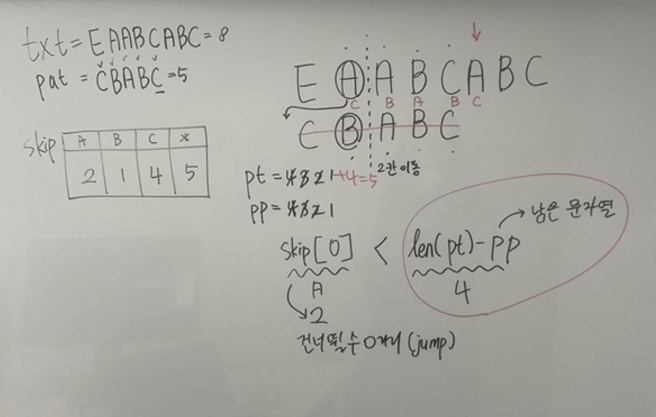 txt = EAABCABC = 8
pat = CBABC = 5
skip
A B C *
2 1 4 5
E A A B C A B C
C B A B C
C B A B C
2칸 이동
pt = 4 3 2 1 +4=5
pp = 4 3 2 1
skip[0] < len(pt)-pp
남은 문자열
A
4
2
건너뛸 수 (jump)